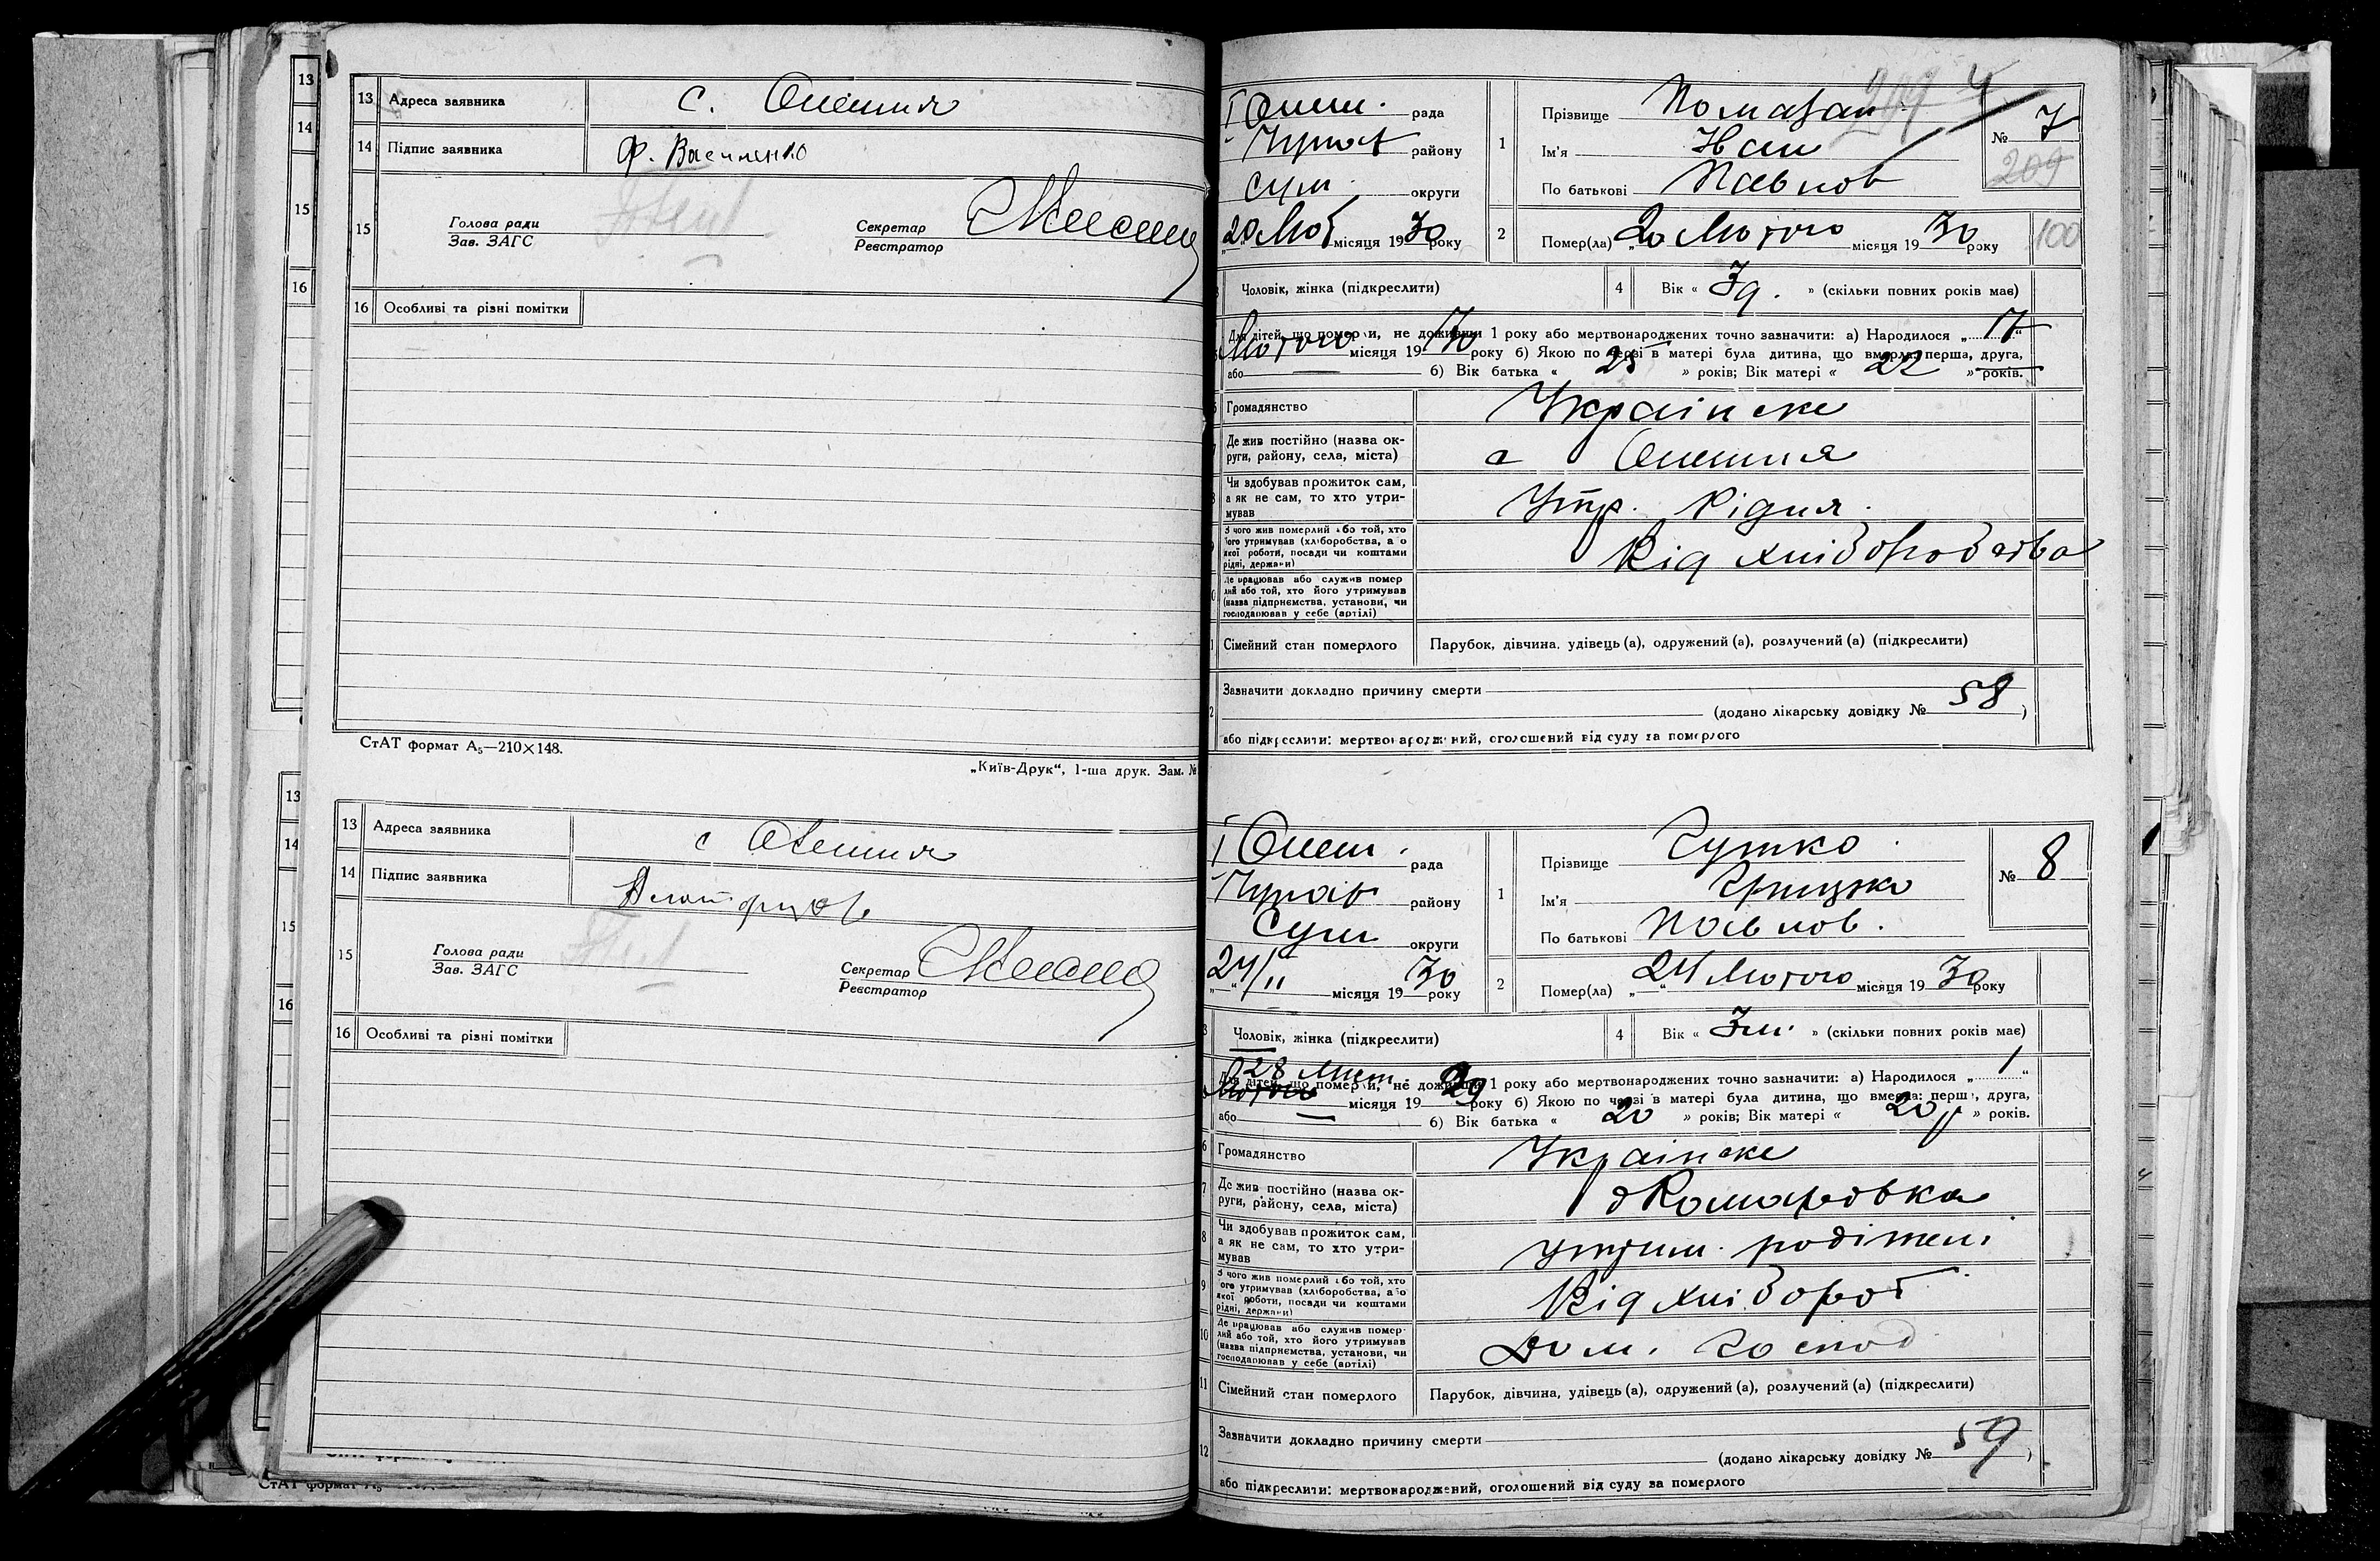 13 Адреса заявника с. Олешня
14 Підпис заявника Ф. Василенко
15 Голова ради
Зав. ЗАГС
Секретар
Реєстратор
16 Особливі та різні помітки
СтАТ формат А₅—210×148.
„Київ-Друк“, 1-ша друк. Зам. №
13 Адреса заявника с Олешня
14 Підпис заявника
15 Голова ради
Зав. ЗАГС
Секретар
Реєстратор
16 Особливі та різні помітки
І Олеш. рада
Чупах району
Сум. округи
20 Лют місяця 1930 року
1 Прізвище Помазан
Ім'я
По батькові Павлов
№ 7
209
2 Помер(ла) „20 Лютого місяця 1930 року
100
Чоловік, жінка (підкреслити)
4 Вік « 3 д. » (скільки повних років має)
Для дітей, що померли, не доживши 1 року або мертвонароджених точно зазначити: а) Народилося „ 17 “
Лютого місяця 1930 року б) Якою по черзі в матері була дитина, що вмерла: перша, друга,
або — б) Вік батька « 25 » років; Вік матері « 22 » років.
Громадянство Українске
Де жив постійно (назва округи, району, села, міста) с Олешня
Чи здобував прожиток сам, а як не сам, то хто утримував Утр. Рідня.
З чого жив померлий або той, хто його утримував (хліборобства, або якої роботи, посади чи коштами рідні, держави) Від хліборобства
Де працював або служив померлий або той, хто його утримував (назва підприємства, установи, чи господарював у себе (артілі)
Сімейний стан померлого Парубок, дівчина, удівець (а), одружений (а), розлучений (а) (підкреслити)
Зазначити докладно причину смерти
(додано лікарську довідку № 58 )
або підкреслити: мертвонароджений, оголошений від суду за померлого
І Олеш. рада
Чупах району
Сум округи
24/II місяця 1930 року
1 Прізвище Гутко
Ім'я Грицько
По батькові Павлов.
№ 8
2 Помер(ла) „24 Лютого місяця 1930 року
3 Чоловік, жінка (підкреслити)
4 Вік « 3 м. » (скільки повних років має)
28 Лист.
Для дітей, що померли, не доживши 1 року або мертвонароджених точно зазначити: а) Народилося „ “
Лютого місяця 1929 року б) Якою по черзі в матері була дитина, що вмерла: перша, друга,
або — б) Вік батька « 20 » років; Вік матері « 20 » років.
6 Громадянство Українске
7 Де жив постійно (назва округи, району, села, міста) Комаровка
8 Чи здобував прожиток сам, а як не сам, то хто утримував утрим. родітелі
9 З чого жив померлий або той, хто його утримував (хліборобства, або якої роботи, посади чи коштами рідні, держави) Від хлібороб
10 Де працював або служив померлий або той, хто його утримував (назва підприємства, установи, чи господарював у себе (артілі) Дом. господ
11 Сімейний стан померлого Парубок, дівчина, удівець (а), одружений (а), розлучений (а) (підкреслити)
12 Зазначити докладно причину смерти
(додано лікарську довідку № 59 )
або підкреслити: мертвонароджений, оголошений від суду за померлого